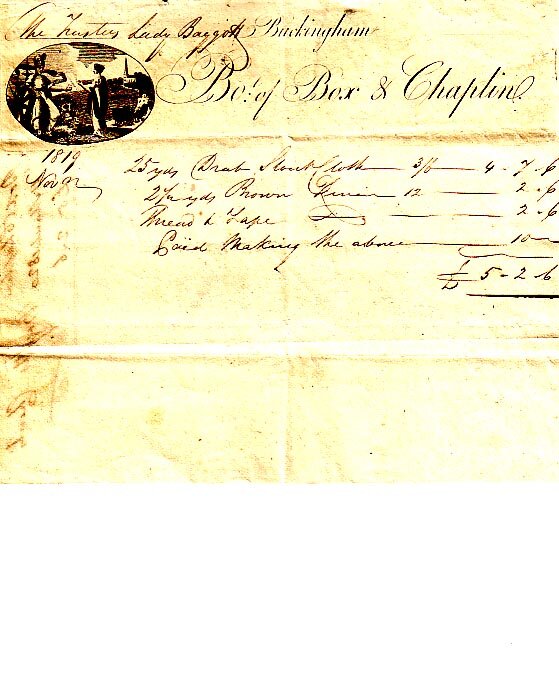 The Trustees Lady Baggott Buckingham
Bot. of Box & Chaplin
1819
Novr 25 yds Drab Stout Cloth 3/6 4 - 7 - 6
2½ yds Brown Linen 12 2 - 6
Thread & Tape 2 - 6
Paid Making the above 10 -
£ 5 - 2 - 6